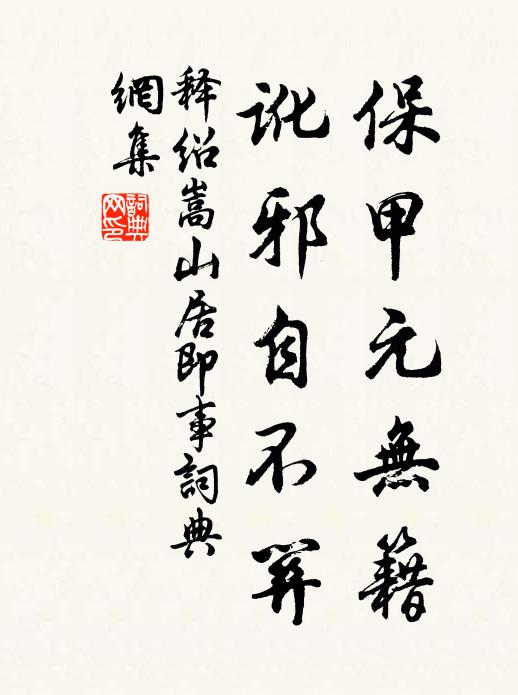 保甲元無籍
訛邪自不羿
释绍嵩山居即事詞典
網集
詞典
网印